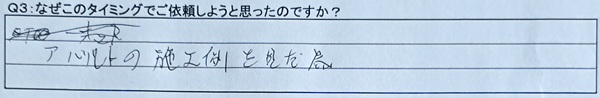 Q3：なぜこのタイミングでご依頼しようと思ったのですか？
の施工例を見た為